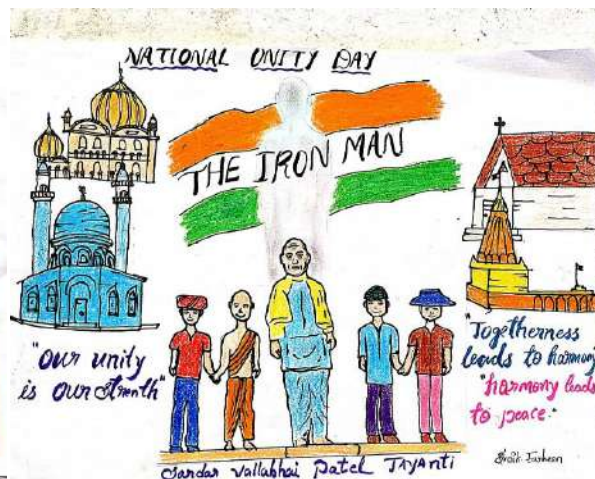 NATIONAL UNITY DAY
THE IRON MAN
"our unity
is our strenth"
"Togetherness
leads to harmony
"harmony leads
to peace."
Sardar Vallabhai Patel JAYANTI
Shaik